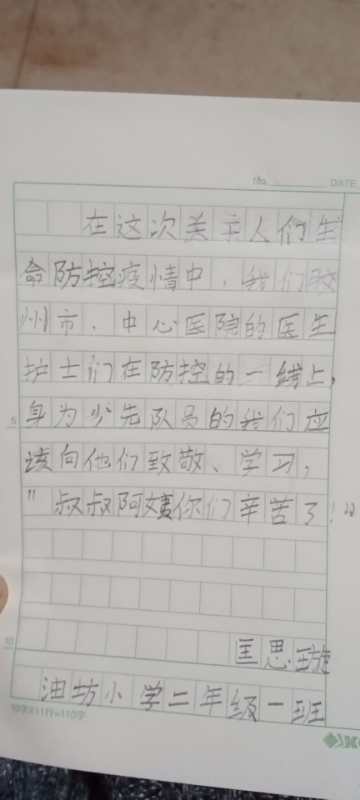 No. DATE
在这次关乎人们生
命防控疫情中，我们胶
州市、中心医院的医生
护士们在防控的一线上，
5 身为少先队员的我们应
该向他们致敬、学习，
"叔叔阿姨你们辛苦了！"
10
匡思
油坊小学二年级一班
10字X11行=110字